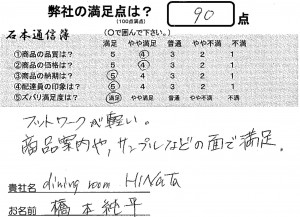 弊社の満足点は？ 90 点
(100点満点)
石本通信簿 (○で囲んで下さい。)
満足 やや満足 普通 やや不満 不満
①商品の品質は？ 5 4 3 2 1
②商品の価格は？ 5 4 3 2 1
③商品の納期は？ 5 4 3 2 1
④配達員の印象は？ 5 4 3 2 1
⑤ズバリ満足度は？ 満足 やや満足 普通 やや不満 不満
フットワークが軽い。
商品案内や、サンプルなどの面で満足。
貴社名 dining room HINATA
お名前 橋本純平